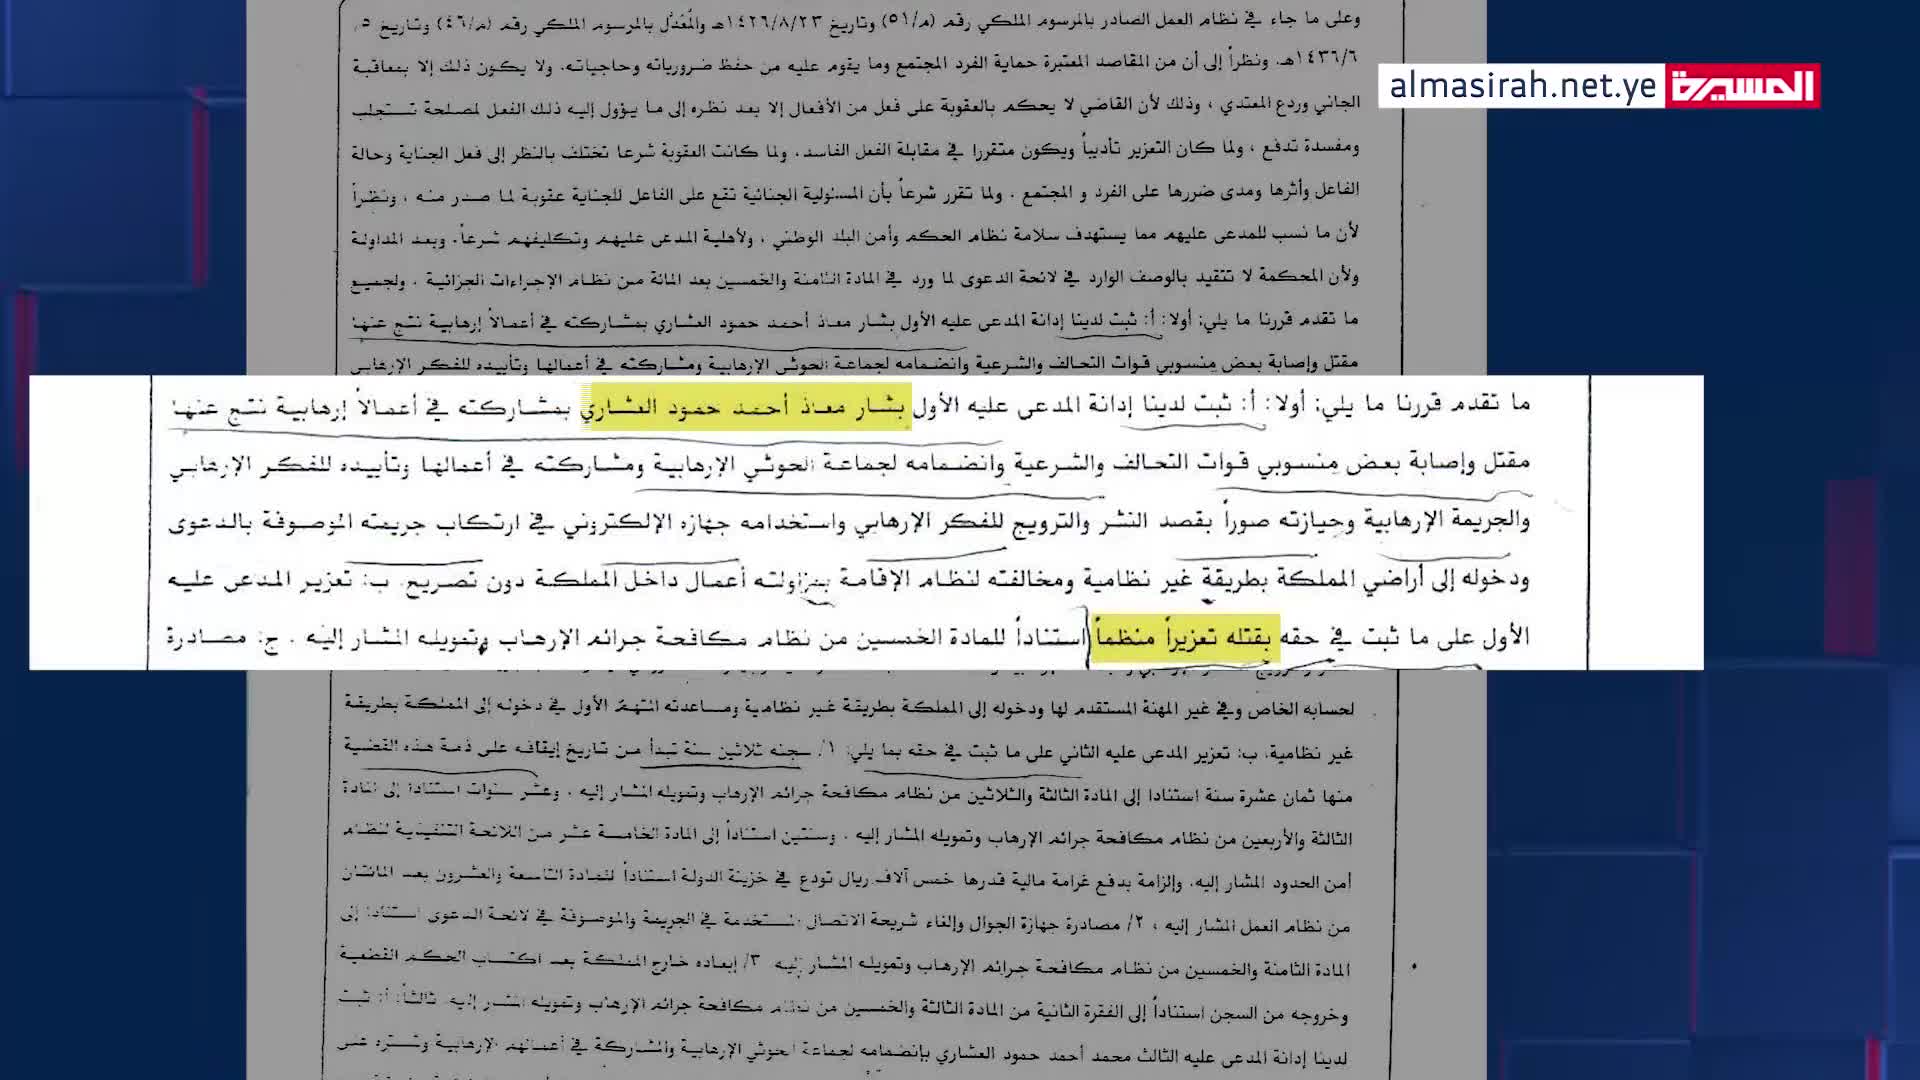 وعلى ما جاء في نظام العمل الصادر بالمرسوم الملكي رقم (م/٥١) وتاريخ ١٤٢٦/٨/٢٣هـ والمُعَدَّل بالمرسوم الملكي رقم (م/٤٦) وتاريخ ٥/
١٤٣٦/٦هـ. ونظراً إلى أن من المقاصد المعتبرة حماية الفرد المجتمع وما يقوم عليه من حفظ ضرورياته وحاجياته. ولا يكون ذلك إلا بمعاقبة
almasirah.net.ye المسيرة
الجاني وردع المعتدي ، وذلك لأن القاضي لا يحكم بالعقوبة على فعل من الأفعال إلا بعد نظره إلى ما يؤول إليه ذلك الفعل لمصلحة تستجلب
ومفسدة تدفع ، ولما كان التعزير تأديباً ويكون متقررا في مقابلة الفعل الفاسد. ولما كانت العقوبة شرعا تختلف بالنظر إلى فعل الجناية وحالة
الفاعل وأثرها ومدى ضررها على الفرد و المجتمع . ولما تقرر شرعاً بأن المسئولية الجنائية تقع على الفاعل للجناية عقوبة لما صدر منه ، ونظراً
لأن ما نسب للمدعى عليهم مما يستهدف سلامة نظام الحكم وأمن البلد الوطني ، ولأهلية المدعى عليهم وتكليفهم شرعاً. وبعد المداولة
ولأن المحكمة لا تتقيد بالوصف الوارد في لائحة الدعوى لما ورد في المادة الثامنة والخمسين بعد المائة من نظام الإجراءات الجزائية . ولجميع
ما تقدم قررنا ما يلي: أولا: أ: ثبت لدينا إدانة المدعى عليه الأول بشار معاذ أحمد حمود العشاري بمشاركته في أعمالاً إرهابية نتج عنها
مقتل وإصابة بعض منسوبي قوات التحالف والشرعية وانضمامه لجماعة الحوثي الإرهابية ومشاركته في أعمالها وتأييده للفكر الإرهابي
ما تقدم قررنا ما يلي: أولا: أ: ثبت لدينا إدانة المدعى عليه الأول بشار معاذ أحمد حمود العشاري بمشاركته في أعمالاً إرهابية نتج عنها
مقتل وإصابة بعض منسوبي قوات التحالف والشرعية وانضمامه لجماعة الحوثي الإرهابية ومشاركته في أعمالها وتأييده للفكر الإرهابي
والجريمة الإرهابية وحيازته صوراً بقصد النشر والترويج للفكر الإرهابي واستخدامه جهازه الإلكتروني في ارتكاب جريمته الموصوفة بالدعوى
ودخوله إلى أراضي المملكة بطريقة غير نظامية ومخالفته لنظام الإقامة بمزاولته أعمال داخل المملكة دون تصريح. ب: تعزير المدعى عليه
الأول على ما ثبت في حقه بقتله تعزيراً منظماً استناداً للمادة الخمسين من نظام مكافحة جرائم الإرهاب وتمويله المشار إليه . ج: مصادرة
لحسابه الخاص وفي غير المهنة المستقدم لها ودخوله إلى المملكة بطريقة غير نظامية ومساعدته المتهم الأول في دخوله إلى المملكة بطريقة
غير نظامية. ب: تعزير المدعى عليه الثاني على ما ثبت في حقه بما يلي: ١/ سجنه ثلاثين سنة تبدأ من تاريخ إيقافه على ذمة هذه القضية
منها ثمان عشرة سنة استنادا إلى المادة الثالثة والثلاثين من نظام مكافحة جرائم الإرهاب وتمويله المشار إليه . وعشر سنوات استنادا إلى المادة
الثالثة والأربعين من نظام مكافحة جرائم الإرهاب وتمويله المشار إليه . وسنتين استناداً إلى المادة الخامسة عشر من اللائحة التنفيذية لنظام
أمن الحدود المشار إليه. وإلزامة بدفع غرامة مالية قدرها خمس آلاف ريال تودع في خزينة الدولة استناداً للمادة التاسعة والعشرون بعد المائتان
من نظام العمل المشار إليه ، ٢/ مصادرة جهازة الجوال وإلغاء شريحة الاتصال المستخدمة في الجريمة والموصوفة في لائحة الدعوى استنادا إلى
المادة الثامنة والخمسين من نظام مكافحة جرائم الإرهاب وتمويله المشار إليه. ٣/ إبعاده خارج المملكة بعد اكتساب الحكم القطعية
وخروجه من السجن استناداً إلى الفقرة الثانية من المادة الثالثة والخمسين من نظام مكافحة جرائم الإرهاب وتمويله المشار إليه. ثالثاً: أ: ثبت
لدينا إدانة المدعى عليه الثالث محمد أحمد حمود العشاري بإنضمامه لجماعة الحوثي الإرهابية والمشاركة في أعمالهم الإرهابية وتستره على